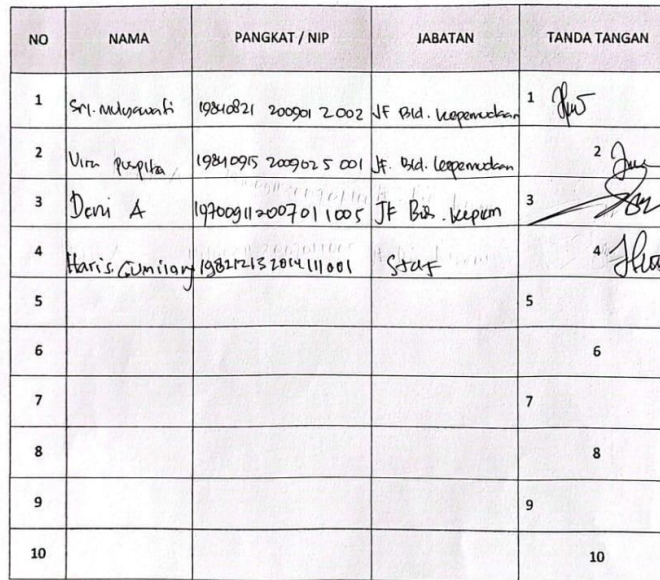 NO NAMA PANGKAT / NIP JABATAN TANDA TANGAN
1 Sri. mulyawati 19840821 200901 2 002 JF Bid. kepemudaan 1
2 Vira puspita 19840915 200902 5 001 JF. Bid. kepemudaan 2
3 Deni A 197009112007011005 JF Bid. kepem 3
4 Haris Gumilang 198212132014111001 Staf 4
5 5
6 6
7 7
8 8
9 9
10 10